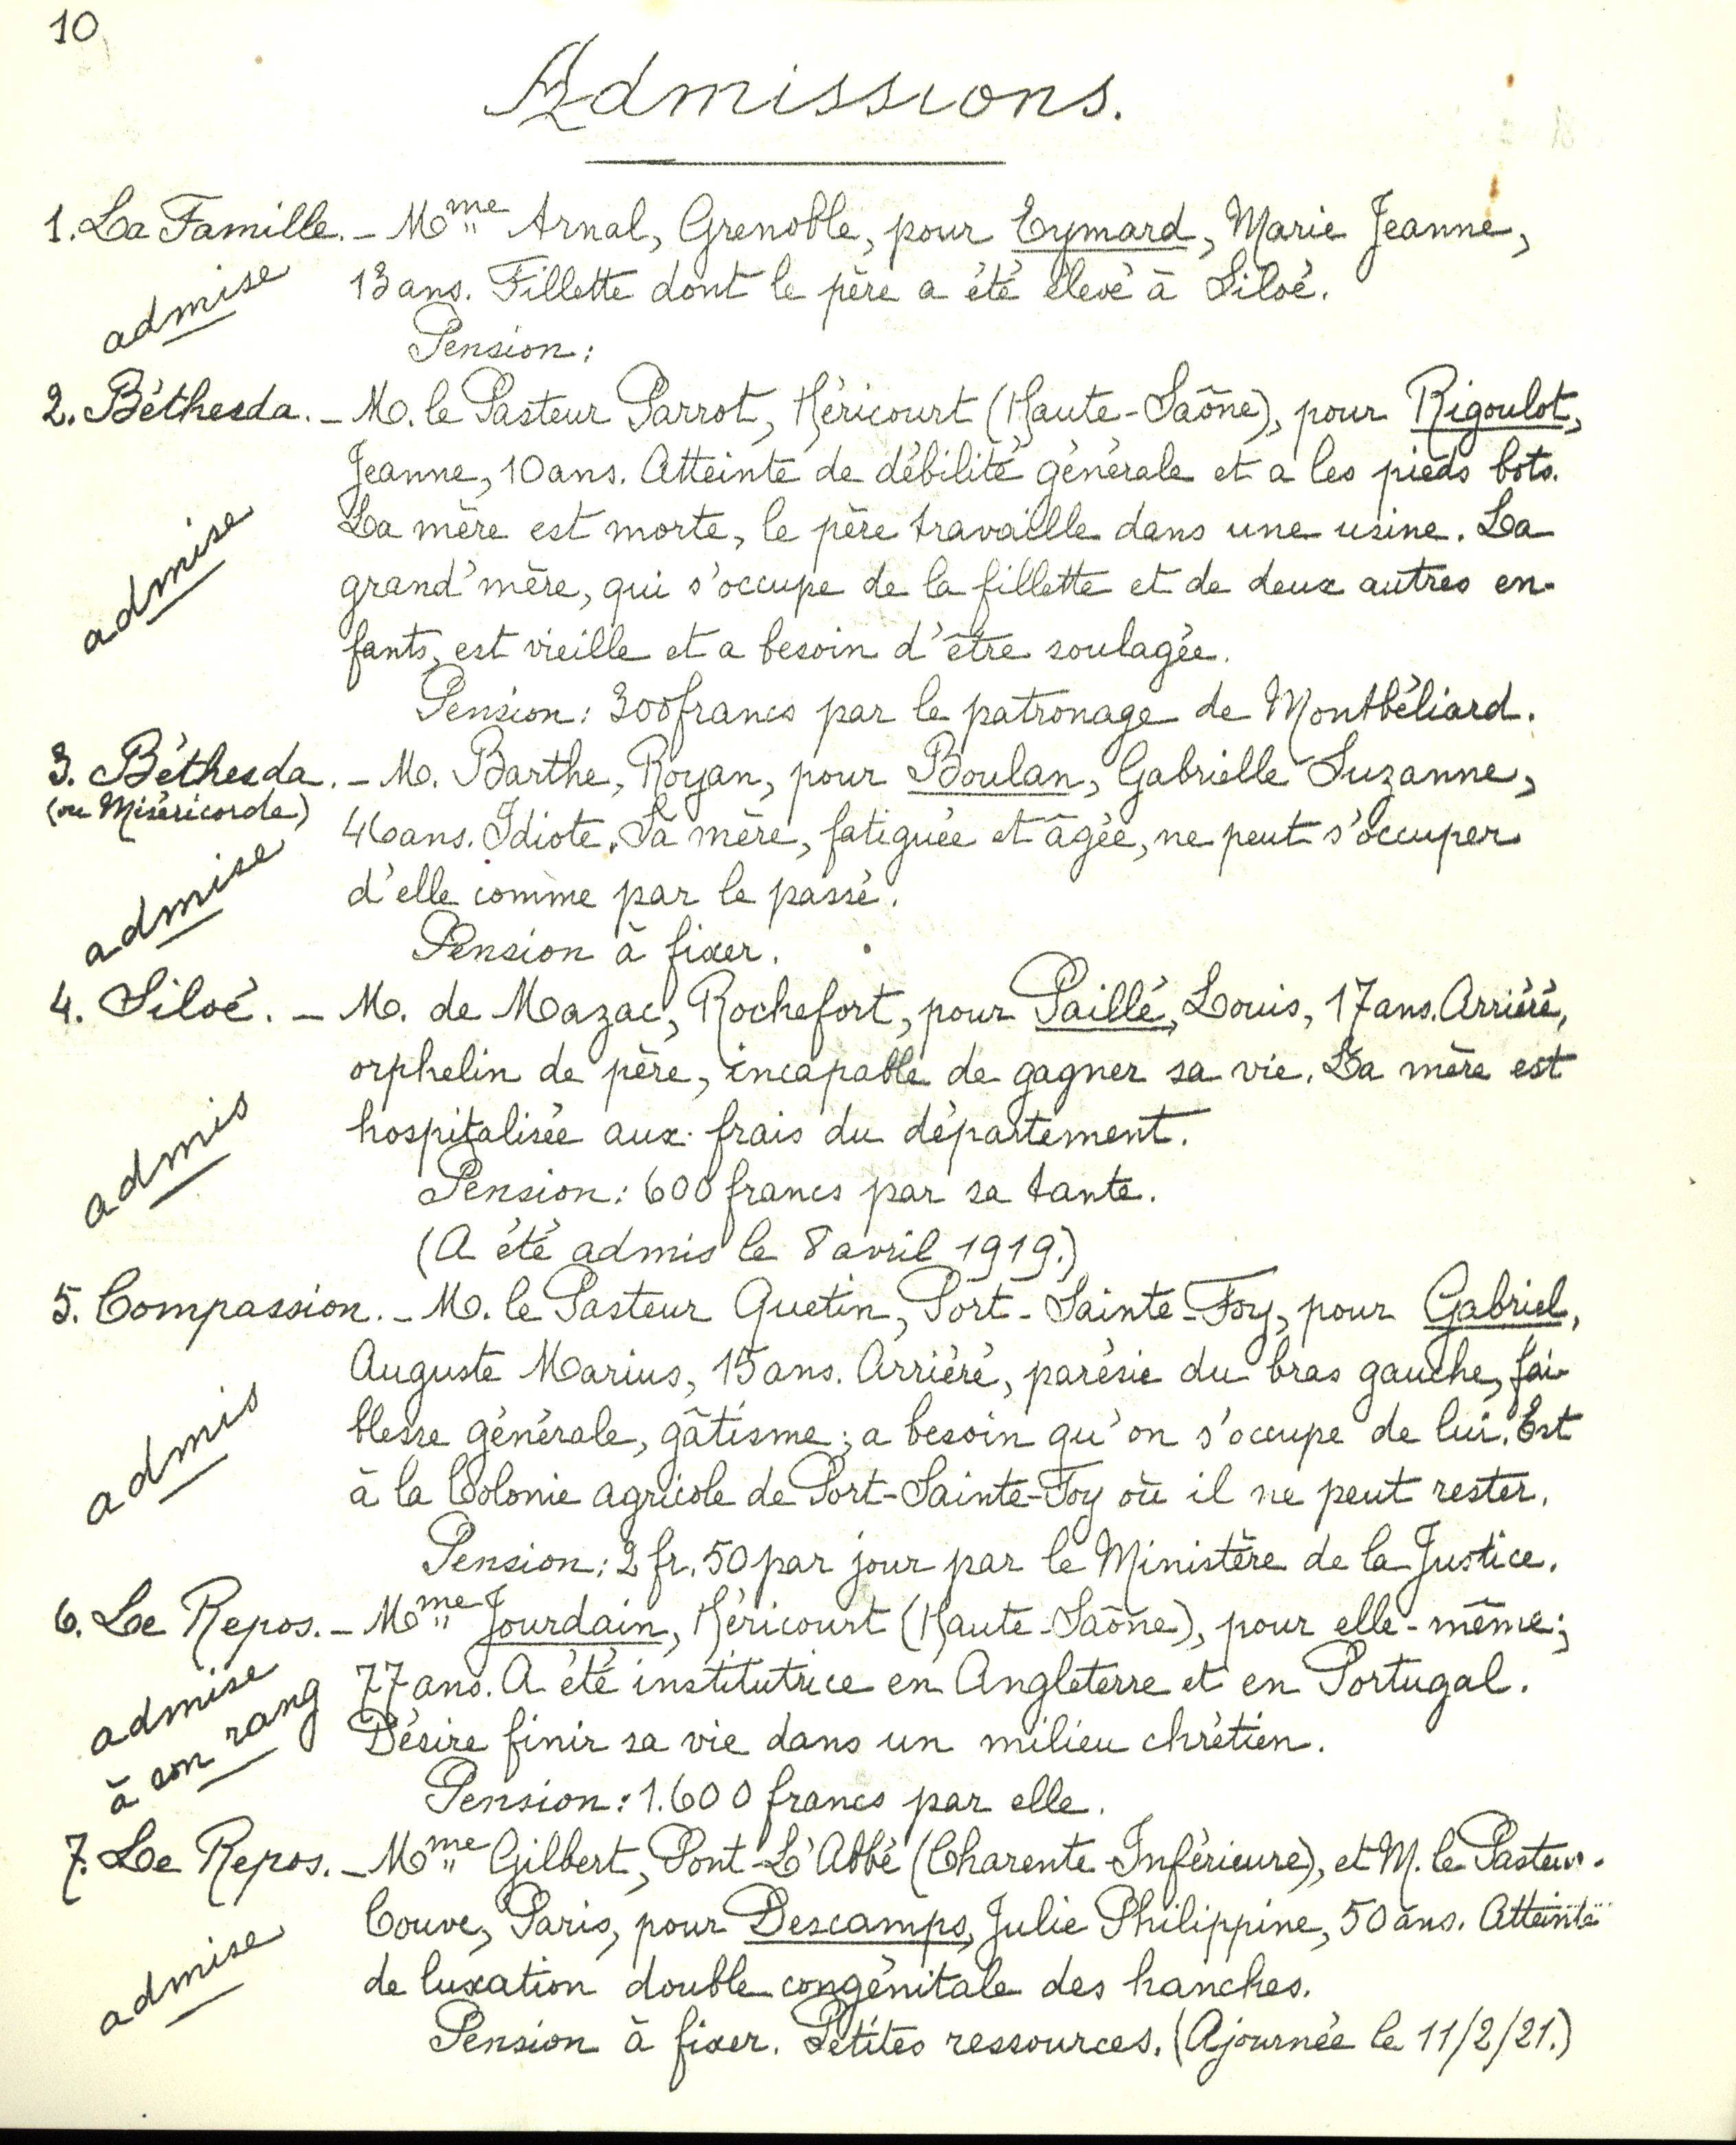 10
Admissions.
1. La Famille. - Mme Arnal, Grenoble, pour Eymard, Marie Jeanne,
admise
13 ans. Fillette dont le père a été élevé à Siloé.
Pension :
2. Béthesda. - M. le Pasteur Parrot, Héricourt (Haute-Saône), pour Rigoulot,
Jeanne, 10 ans. Atteinte de débilité générale et a les pieds bots.
admise
La mère est morte, le père travaille dans une usine. La
grand'mère, qui s'occupe de la fillette et de deux autres en-
fants, est vieille et a besoin d'être soulagée.
Pension : 300 francs par le patronage de Montbéliard.
3. Béthesda. - M. Barthe, Royan, pour Boulan, Gabrielle Suzanne,
(ou Miséricorde)
46 ans. Idiote. Sa mère, fatiguée et âgée, ne peut s'occuper
admise
d'elle comme par le passé.
Pension à fixer.
4. Siloé. - M. de Mazac, Rochefort, pour Paillé, Louis, 17 ans. Arriéré,
orphelin de père, incapable de gagner sa vie. La mère est
admis
hospitalisée aux frais du département.
Pension : 600 francs par sa tante.
(A été admis le 8 avril 1919.)
5. Compassion. - M. le Pasteur Quetin, Port-Sainte-Foy, pour Gabriel,
Auguste Marius, 15 ans. Arriéré, parésie du bras gauche, fai-
admis
blesse générale, gâtisme ; a besoin qu'on s'occupe de lui. Est
à la Colonie agricole de Port-Sainte-Foy où il ne peut rester.
Pension : 2 fr. 50 par jour par le Ministère de la Justice.
6. Le Repos. - Mme Jourdain, Héricourt (Haute-Saône), pour elle-même ;
admise
à son rang
77 ans. A été institutrice en Angleterre et en Portugal.
Désire finir sa vie dans un milieu chrétien.
Pension : 1.600 francs par elle.
7. Le Repos. - Mme Gilbert, Pont-L'Abbé (Charente-Inférieure), et M. le Pasteur
Couve, Paris, pour Descamps, Julie Philippine, 50 ans. Atteinte
admise
de luxation double congénitale des hanches.
Pension à fixer. Petites ressources. (Ajournée le 11/2/21.)